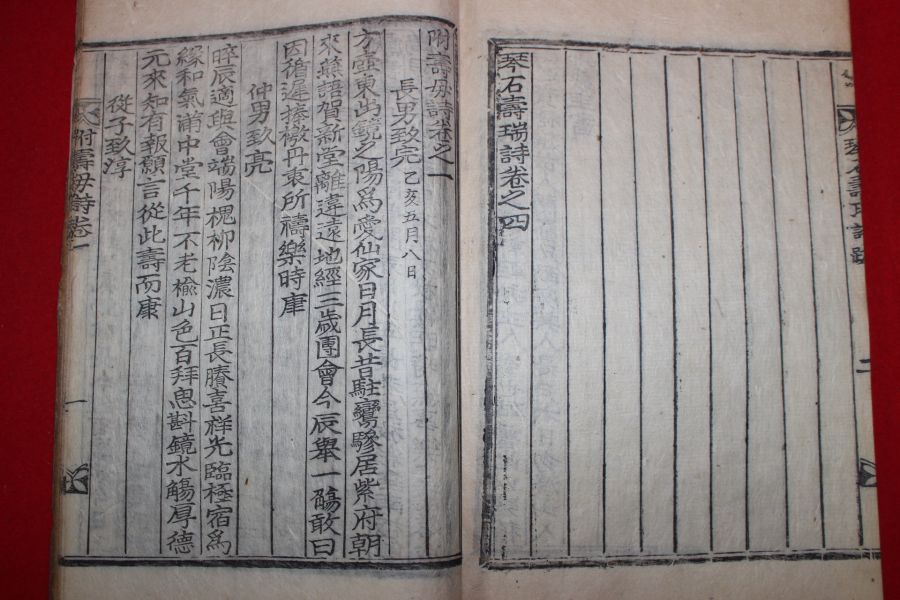 琴石壽瑞詩卷之四
附壽母詩卷之一
長男致完 乙亥五月八日
方壺東出鏡之陽爲愛仙家日月長昔駐鸞驂居紫府朝
來燕語賀新堂離違遠地經三歲團會今辰擧一觴敢曰
因循遲捧檄丹衷所禱樂時康
仲男致亮
晬辰適與會端陽槐柳陰濃日正長賸喜祥光臨極宿爲
緣和氣滿中堂千年不老楡山色百拜恩斟鏡水觴厚德
元來知有報願言從此壽而康
從子致淳
附壽母詩卷一
一